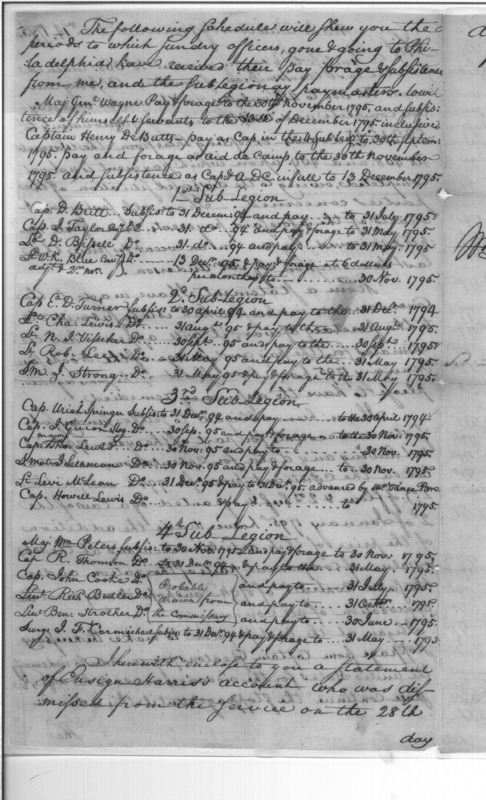 The following Schedule will shew you the
periods to which sundry officers, gone & going to Phi-
ladelphia have received their pay forage & subsistence
from me, and the sublegionary paymasters.
Maj Genl. Wayne Pay & forage to the 30th November 1795, and subsis-
tence of himself & servants to the of December 1795 inclusive
Captain Henry De Butts pay as Cap. in the 4 sub Leg. to 30th Septem.
1795. pay and forage as aid de Camp to the 30th November
1795 and subsistence as Capt. & A.D.C. in full to 13 December 1795.
1st Sub-Legion
Cap. D. Britt Subsis. to 31 Decem. 94 and pay to 31 July 1795.
Cap. S. Taylor Do. 31. do. 94 and pay & forage to 31 May 1795.
Lt. D. Bissell Do. 31. do. 94 and pay to 31 May 1795.
Lt. W. K. Blue Do. 13 Decr. 95 & pay & forage at 6 dollars
adjt. & 2r. mr. per month to 30 Nov. 1795.
2d. Sub-Legion
Cap E. D. Turner Subsis. to 30 April 94 and pay to the 31 Decr. 1794
Lt. Cha. Lewis Do. 31 Augt. 95 & pay to the 31 Augt. 1795.
Lt. N. J. Visscher Do. 30 Sept. 95 and pay to the 30 Sept. 1795
Lt. Rob. Lee Do. 31 May 95 and pay to the 31 May 1795
J. Strong Do. 31 May 95 & pay & forage to the 31 May 1795.
3rd Sub Legion
Cap. Uriah Springer Subsis. to 31 Decr. 94 and pay to the 30 April 1794
Cap. Do. 30 Sep. 95 and pay & forage to the 30 Nov. 1795.
major
Cap. Thos. Lewis Do. 30 Nov. 95 and pay to 30 Nov. 1795.
Do. 30 Nov. 95 and pay & forage to 30 Nov. 1795.
Lt. Levi McLean Do. 31 Decr. 95 & pay to 31 Dec. 95 advanced by Mr. Vance
Cap. Howell Lewis Do. & pay to 1795.
4th Sub-Legion
Maj. Wm. Peters Subsis. to 30 Nov. 1795 and pay & forage to 30 Nov. 1795.
Cap. R. Thomson Do. to 31 Decr. 94 & pay to the 31 May 1795.
Cap. John Cooke Do. Probably and pay to 31 July 1795.
Lieut. Rich. Butler Do. drawn from and pay to 31 Octr. 1795.
Lieut. Ben: Strother Do. the Commissary and pay to 30 June 1795
Surgn. J. F. Carmichael Subsis. to 31 Decr. 94 & pay & forage to 31 May 1795
I herewith inclose to you a statement
of Ensign Harris's account who was dis-
missed from the Service on the 28th
day